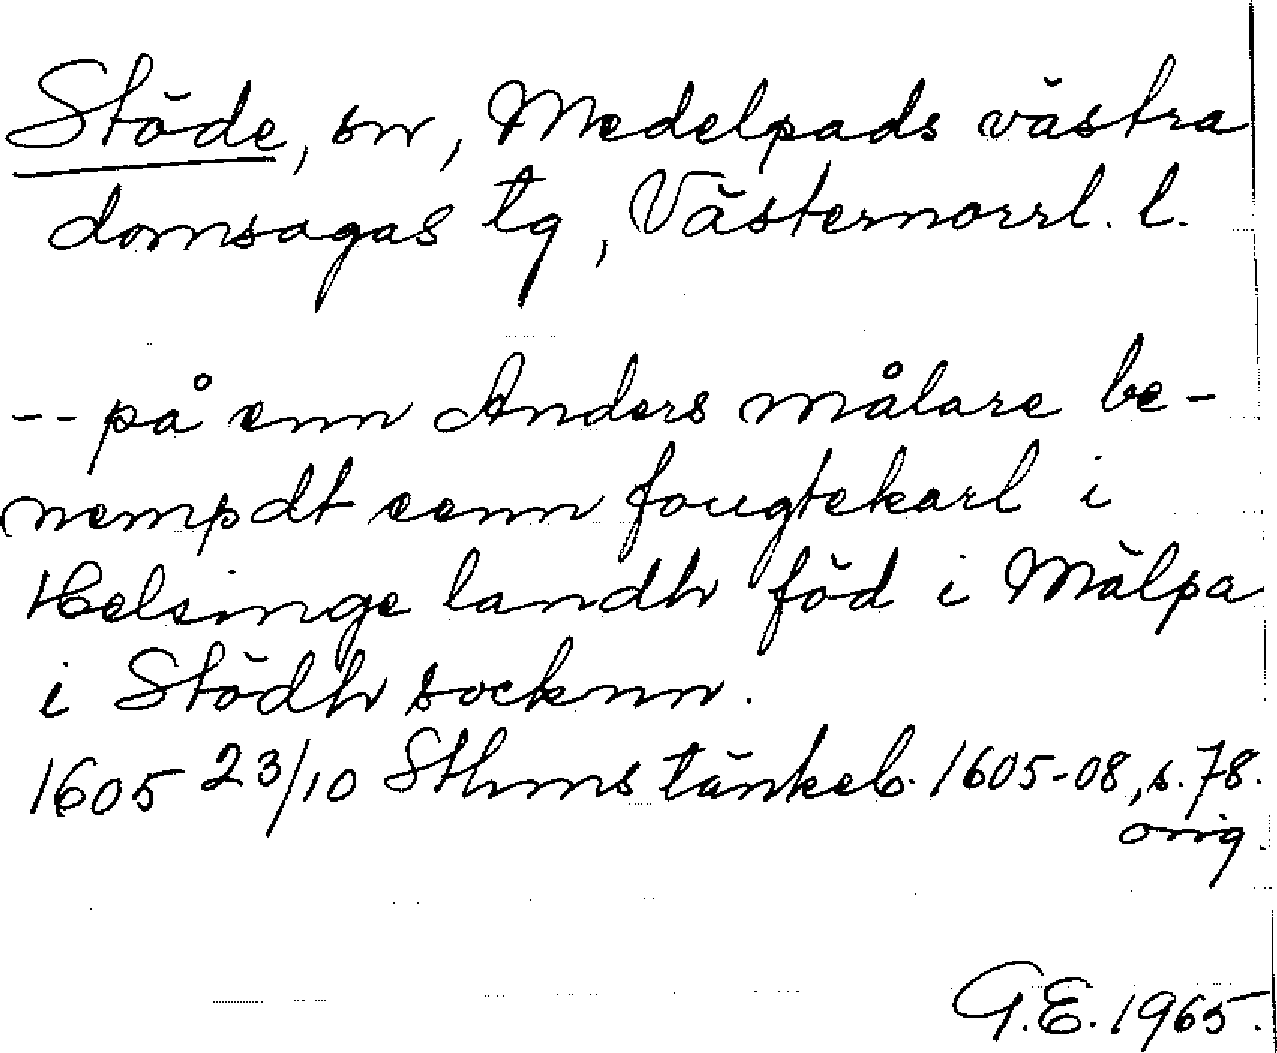 Stöde, sn, Medelpads västra
domsagas tg, Västernorrl. l.
-- på enn Anders målare be-
nempdt eenn fougtekarl i
Helsinge landh föd i Mälpa
i Stödh socknn.
1605 23/10 Sthms tänkeb. 1605-08, s. 78.
orig.
G.E. 1965.